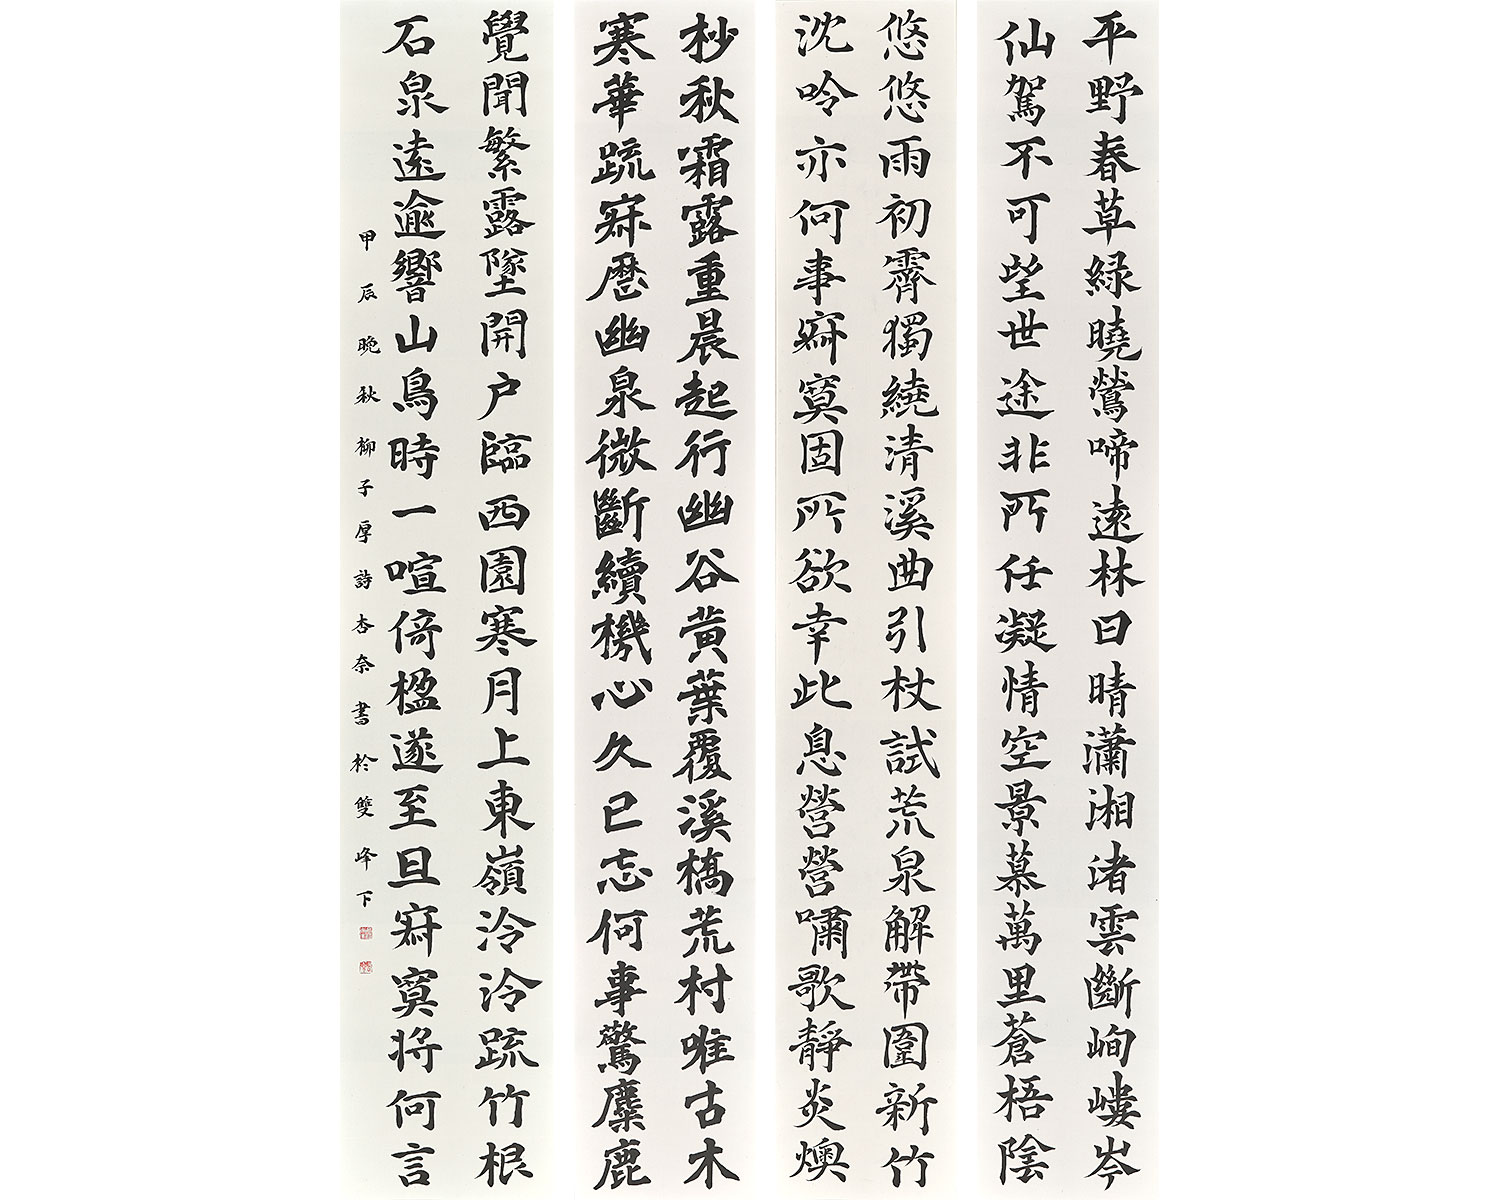 平野春草緑曉鶯啼遠林日晴瀟湘渚雲斷岣嶁岑
仙駕不可望世途非所任凝情空景慕萬里蒼梧陰
悠悠雨初霽獨繞清溪曲引杖試荒泉解帶圍新竹
沈吟亦何事寂寞固所欲幸此息營營嘯歌靜炎燠
杪秋霜露重晨起行幽谷黄葉覆溪橋荒村唯古木
寒華疏寂歴幽泉微斷續機心久已忘何事驚麋鹿
覺聞繁露墜開户臨西園寒月上東嶺泠泠疏竹根
石泉遠逾響山鳥時一喧倚楹遂至旦寂寞将何言
甲辰晚秋柳子厚詩杏奈書於雙峰下